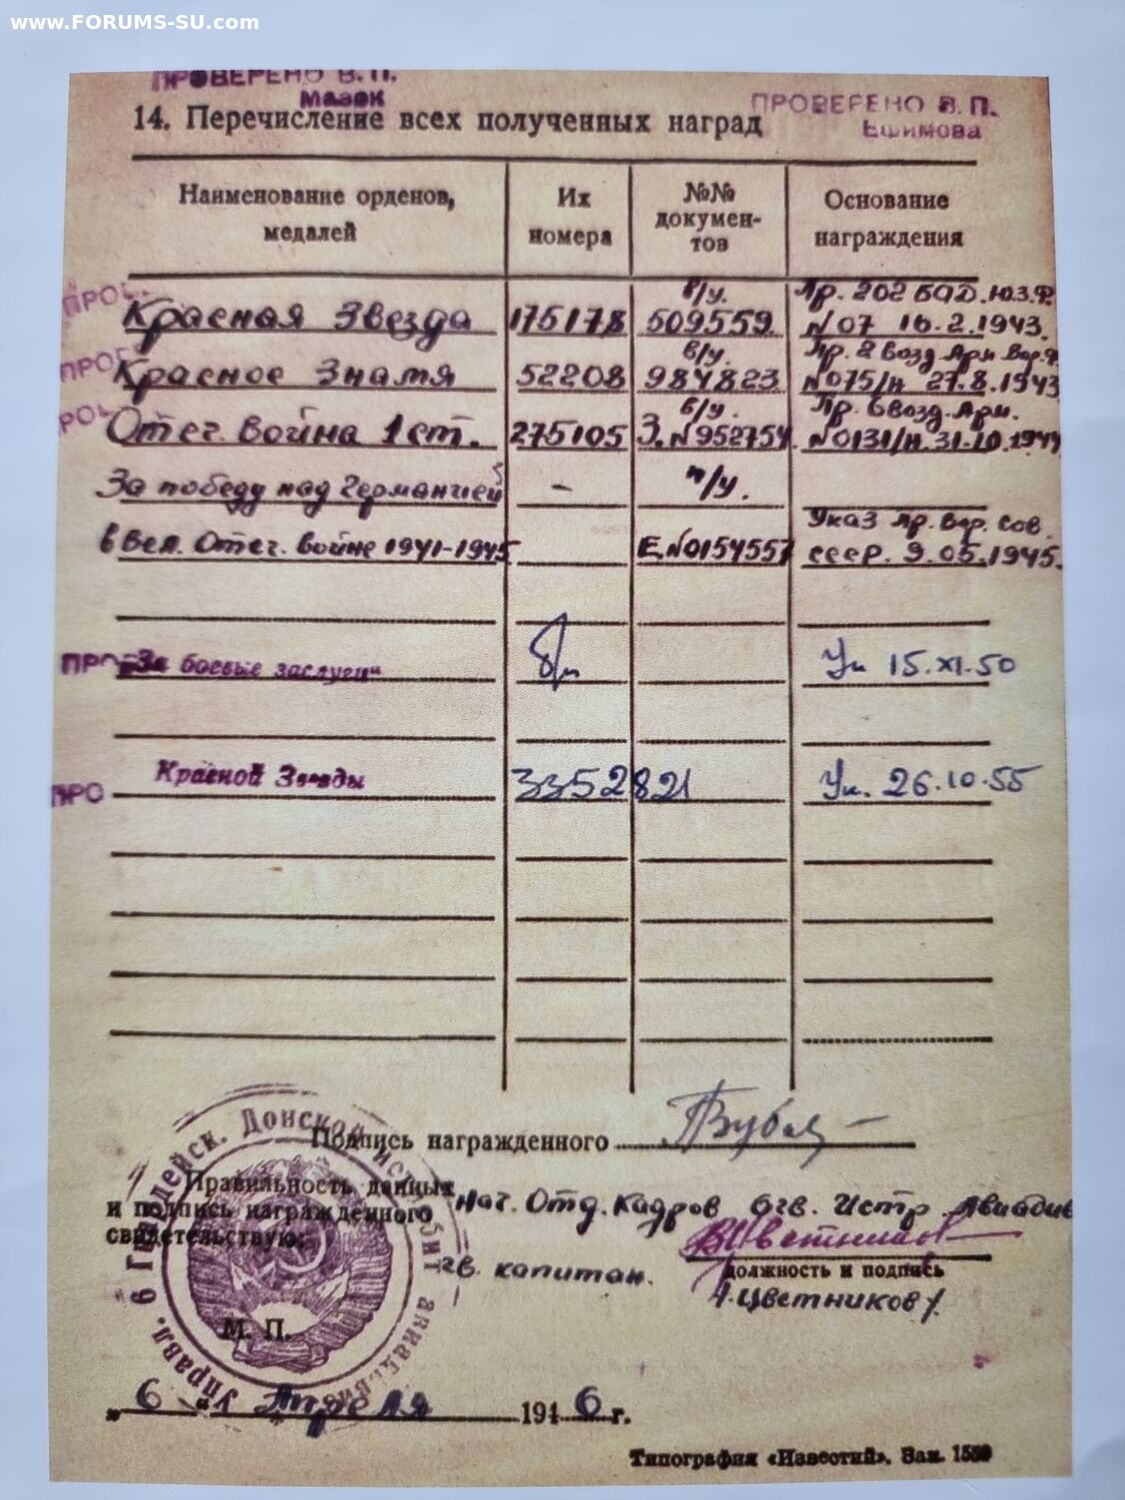 www.FORUMS-SU.com
ПРОВЕРЕНО В. П.
Мазок
ПРОВЕРЕНО В. П.
Ефимова
14. Перечисление всех полученных наград
Наименование орденов, медалей
Их номера
№№ докумен-тов
Основание награждения
ПРОВ
Красная Звезда 175178 в/у. 509559 Пр. 202 БАД. Ю.З.Ф. №07 16.2.1943.
ПРОВ
Красное Знамя 52208 в/у. 984823 Пр. 2 Возд. Арм Вор.Ф. №075/н 27.8.1943
ПРОВ
Отеч. война 1 ст. 275105 в/у. З.№952754 Пр. 6 возд. Арм. №0131/н. 31.10.1944
За победу над Германией - п/у.
в Вел. Отеч. войне 1941-1945 Е.№0154557 Указ Пр. Вер. Сов. СССР. 9.05.1945.
ПРО За боевые заслуги" б/н Ук 15.XI.50
ПРО Красной Звезды 3352821 Ук. 26.10.55
Подпись награжденного
Правильность данных
и подпись награжденного
свидетельствую:
Нач. Отд. Кадров 6 гв. Истр. Авиадив
гв. капитан.
должность и подпись
/.Цветников/.
Управл. 6 Гвардейск. Донской
М. П.
„ 6 " Апреля 1946 г.
Типография «Известий». Зак. 1559